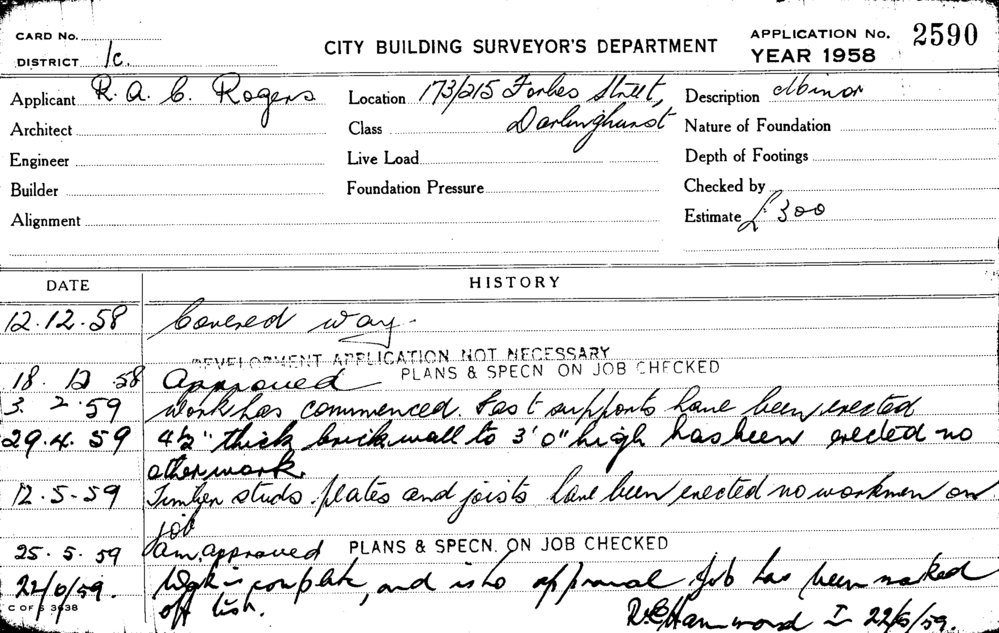 CARD No.
DISTRICT 1c.
CITY BUILDING SURVEYOR'S DEPARTMENT
APPLICATION No. 2590
YEAR 1958
Applicant R. A. C. Rogers Location 173/215 Forbes Street, Description Minor
Architect Class Darlinghurst Nature of Foundation
Engineer Live Load Depth of Footings
Builder Foundation Pressure Checked by
Alignment Estimate £300
DATE HISTORY
12.12.58 Covered way.
DEVELOPMENT APPLICATION NOT NECESSARY
18. 12 58 Approved PLANS & SPECN ON JOB CHECKED
3. 2. 59 Work has commenced. supports have been erected
29.4. 59 4½" thick brick wall to 3'0" high has been erected no
other work.
12.5-59 Timber studs. plates and joists have been erected no workmen on
job
25. 5. 59 Am. approved PLANS & SPECN. ON JOB CHECKED
22/6/59. Work is complete, and is to approval Job has been marked
off list.
C OF S 3638
Hammond I 22/6/59.